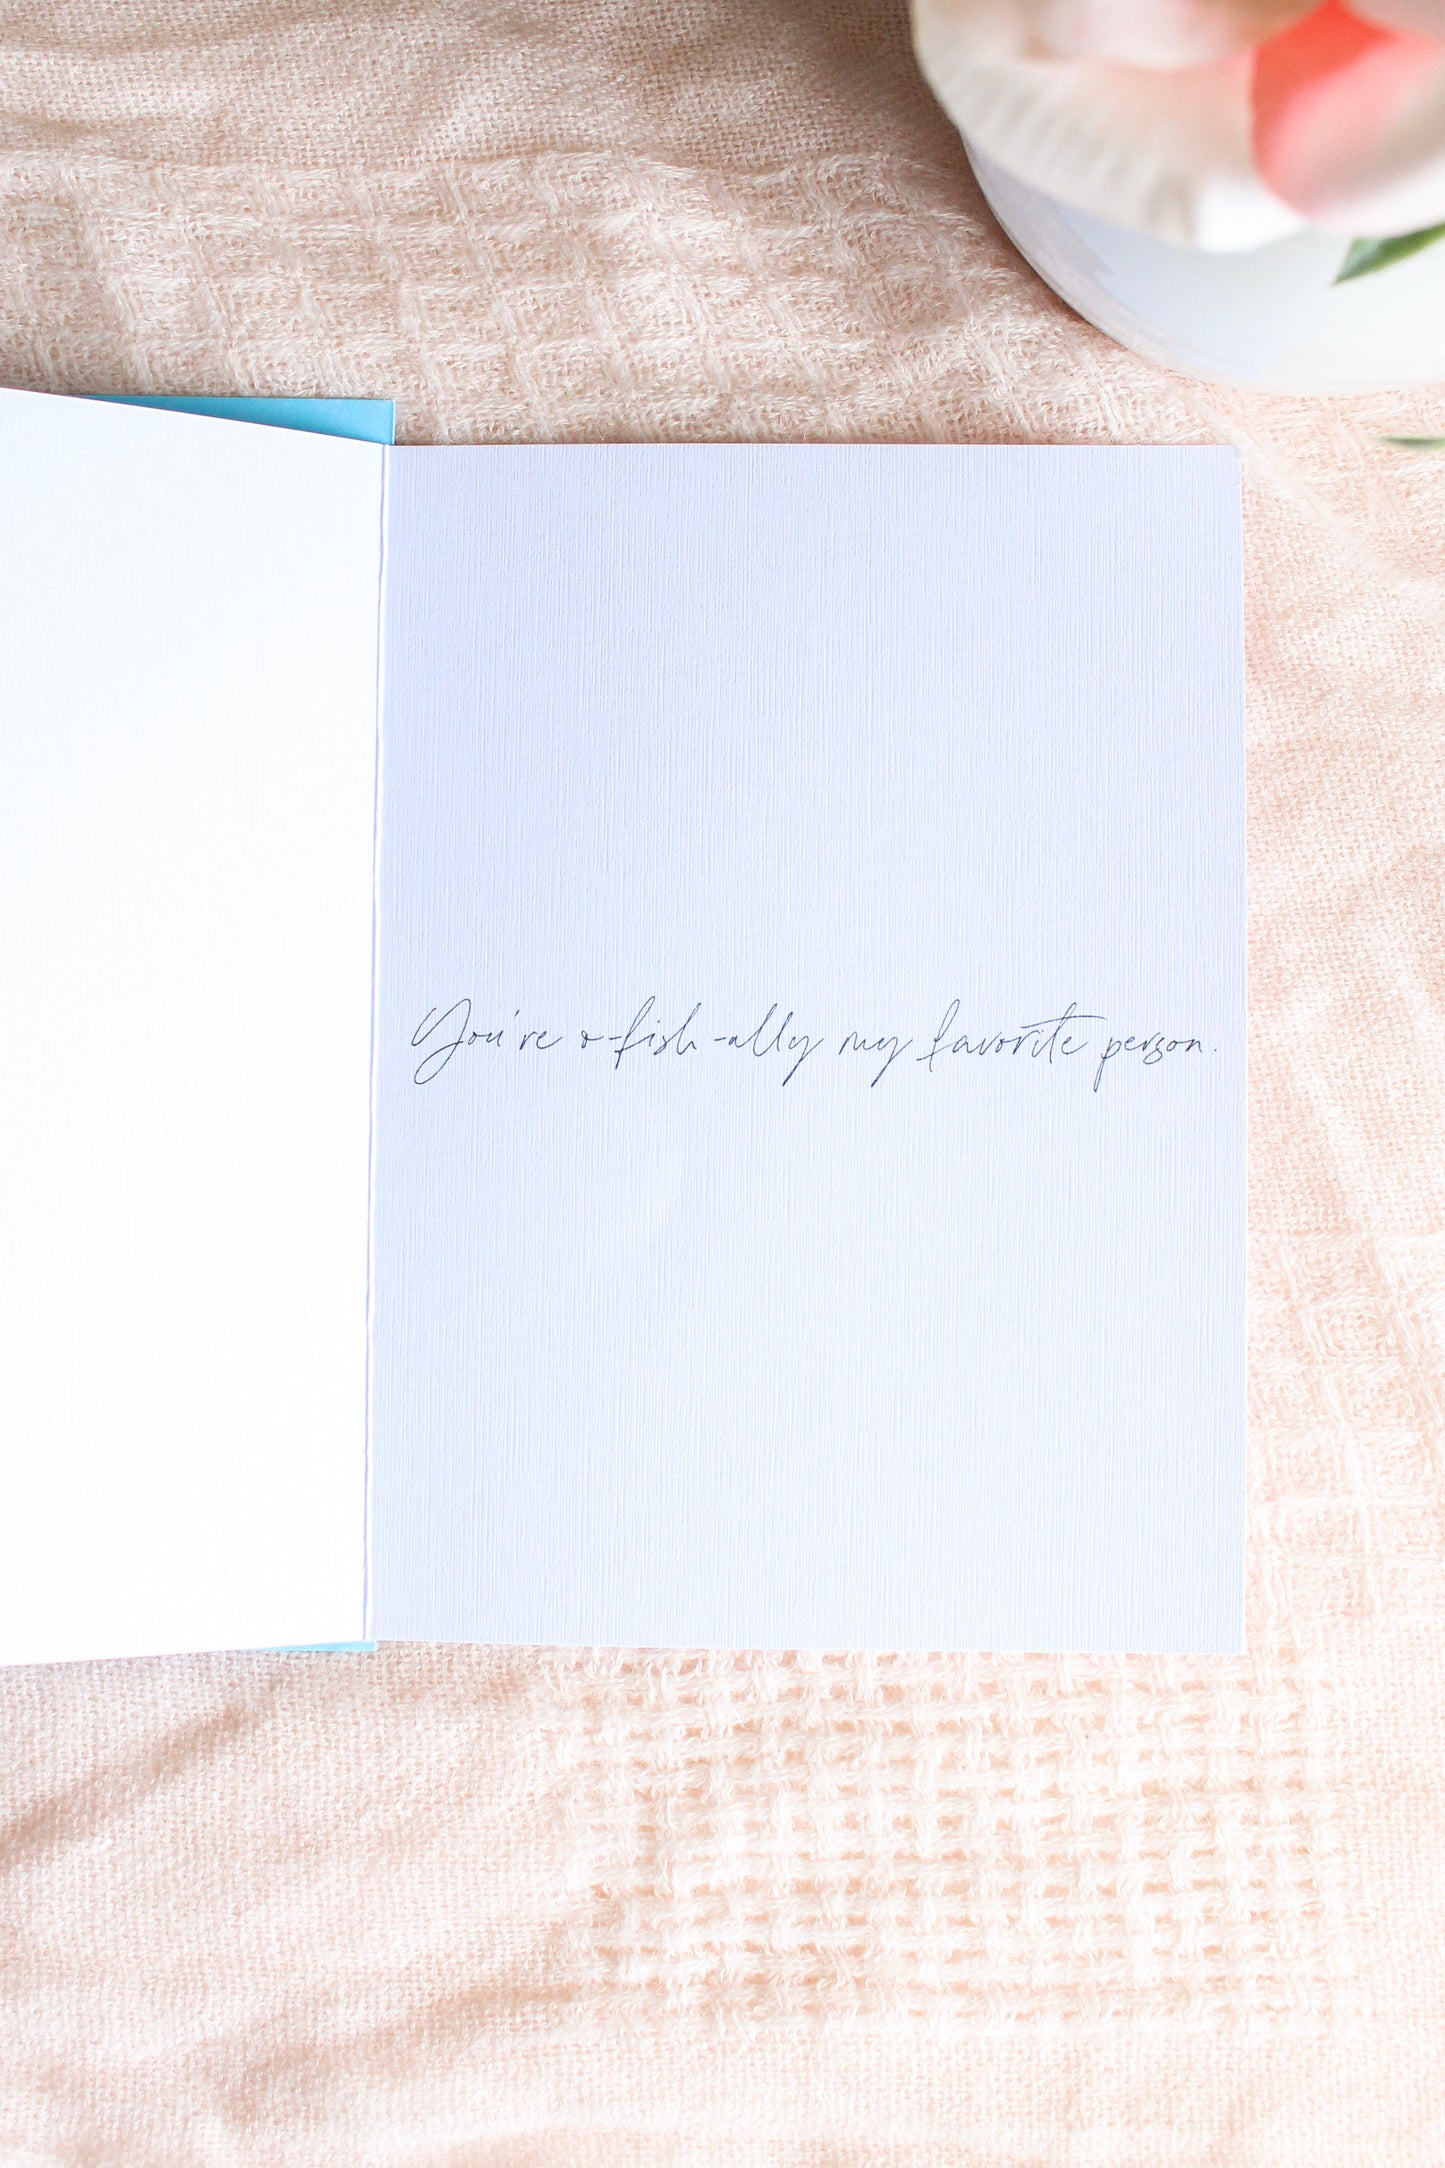 You're o-fish-ally my favorite person.